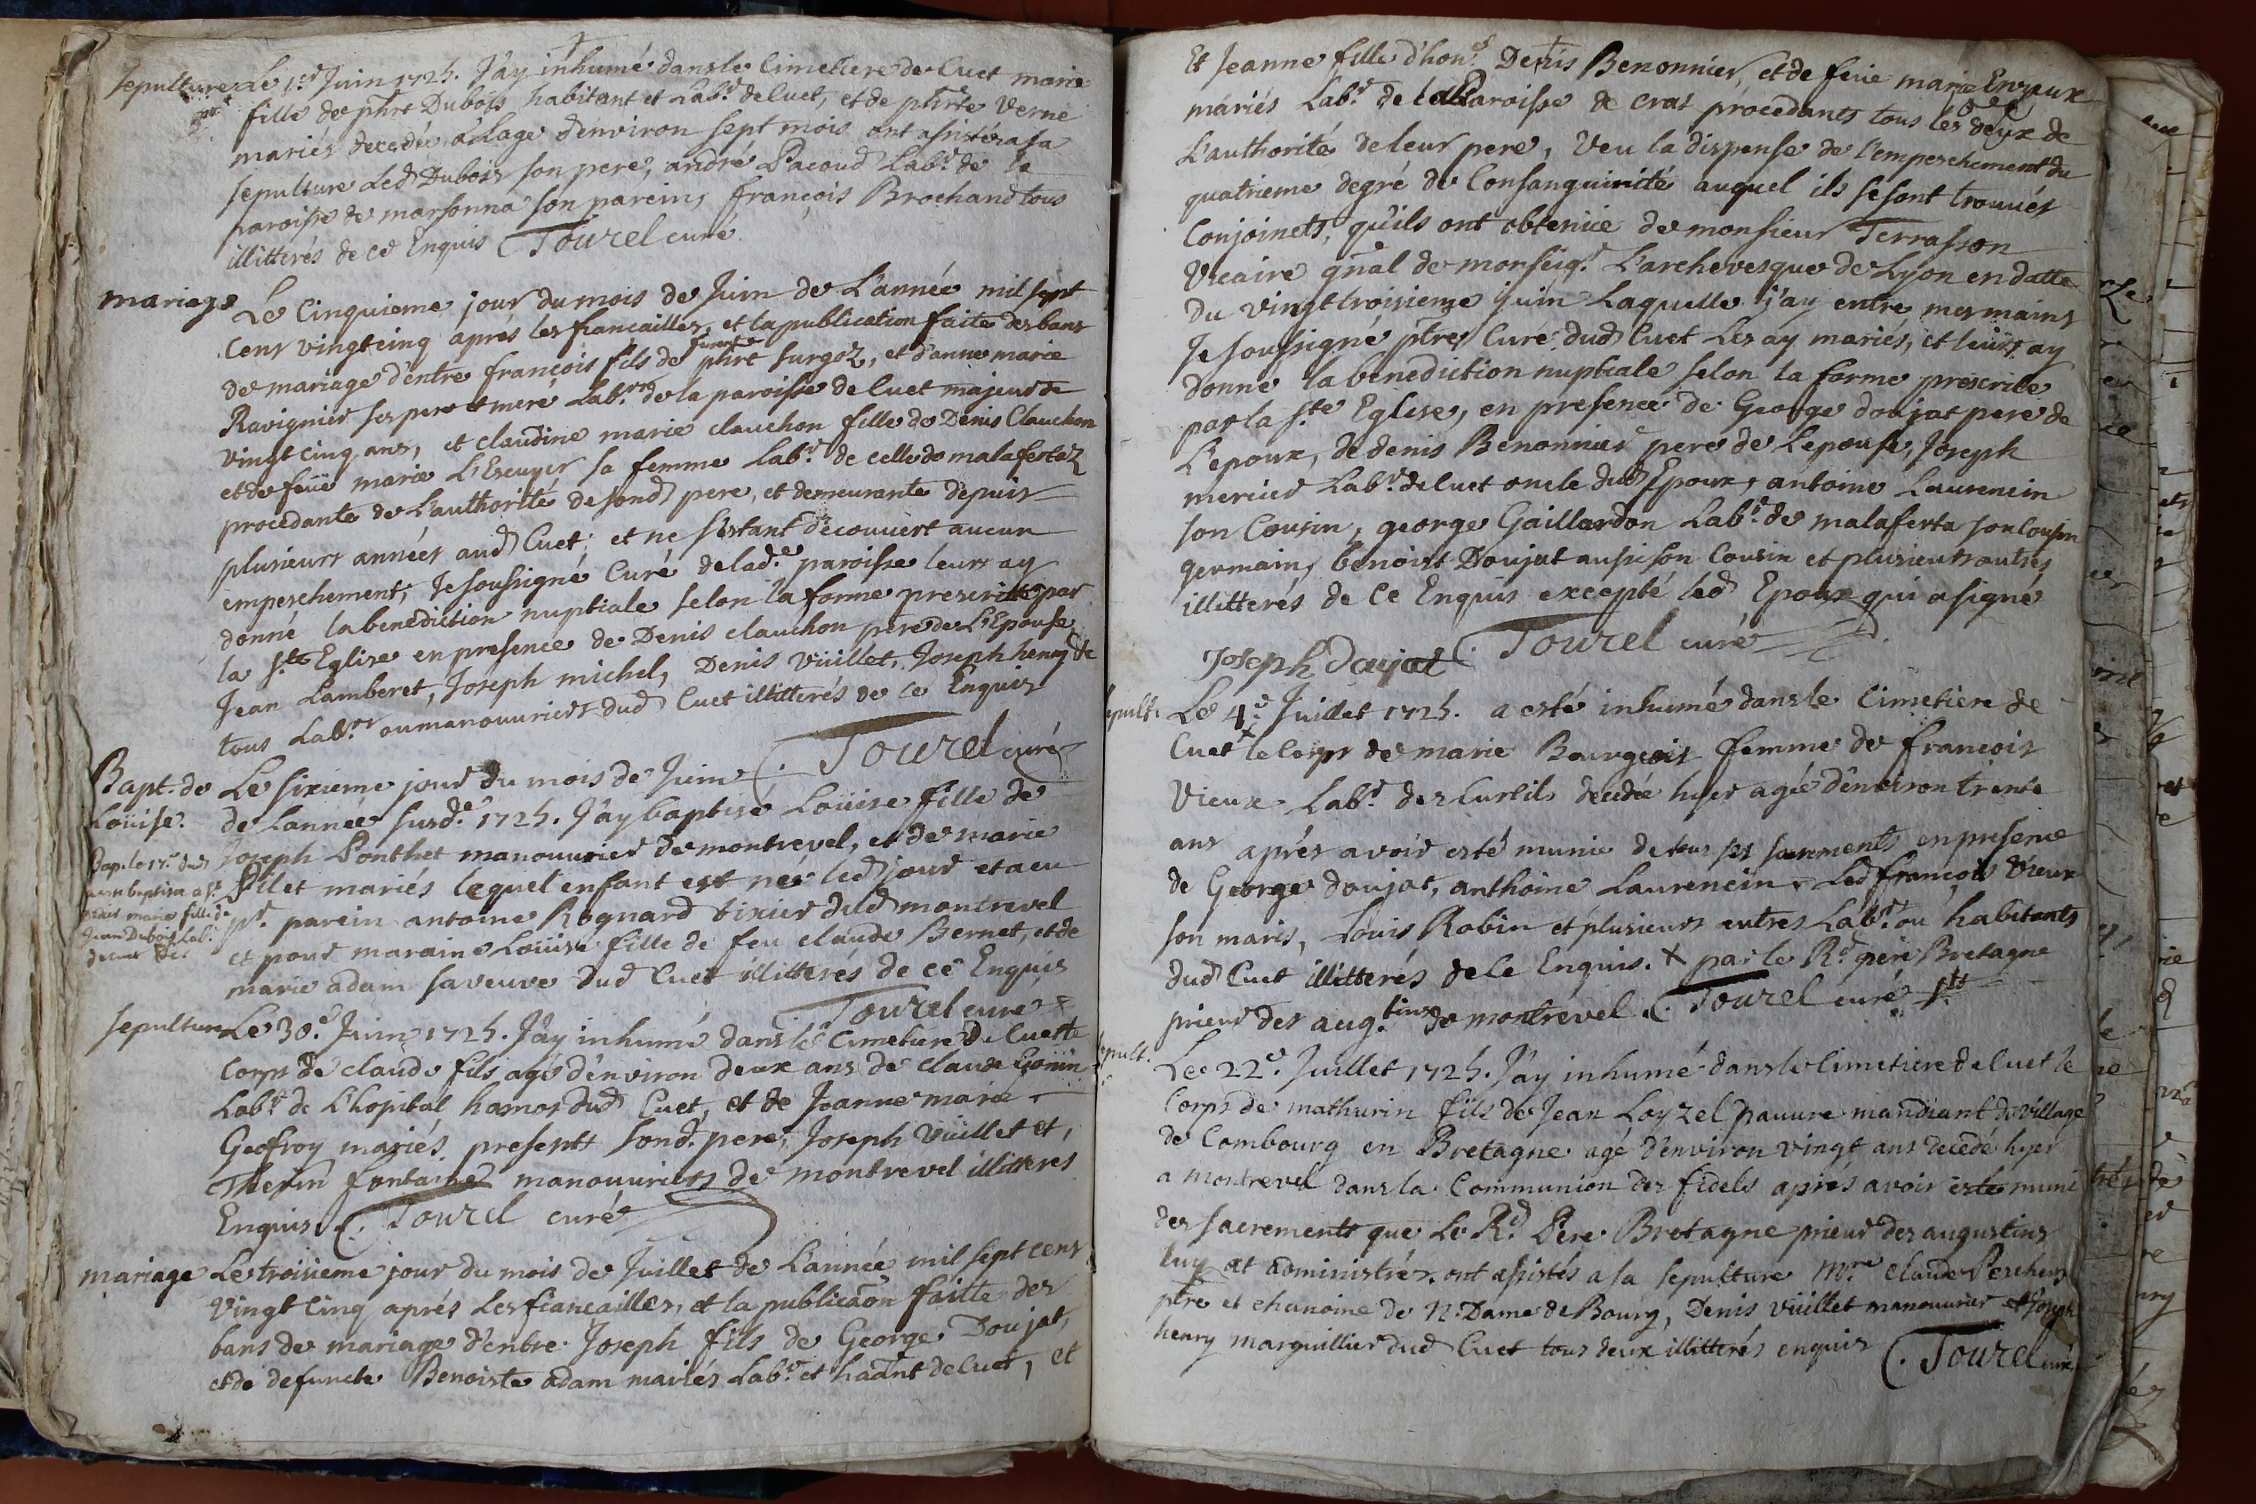 sepulture Le 1.er Juin 1725. J'ay inhumé dans le Cimetiere de Cuet marie
fille de phrt Dubois habitant et Lab.r de Cuet, et de phrte Verne
mariés decedée a l'age d'environ sept mois ont assisté a sa
sepulture Led Dubois son pere, andré Pacoud Lab.r de la
paroisse de marsonna son parein, françois Brochand tous
illitterés de ce Enquis Tourel curé
mariage Le Cinquieme jour du mois de Juin de L'année mil sept
Cens vingt cinq aprés les fiancailles, et la publication faite des bans
de mariage d'entre françois fils de phrt Surgoz, et d'anne marie
Ravignier ses pere et mere Lab.rs de la paroisse de Cuet majeur de
vingt cinq ans, et claudine marie clauchon fille de Denis Clauchon
et de feüe marie L'Escuyer sa femme Lab.r de celle de malafertaz
procedante de L'authorité de sond pere, et demeurante depuis
plusieurs années aud Cuet; et ne s'estant decouvert aucun
empeschement, Je soussigné Curé de lad.e paroisse leurs ay
donné la benediction nuptiale selon la forme prescritte par
la S.te Eglise en presence de Denis clauchon pere de L'Epouse
Jean Lamberet, Joseph michel, Denis Vüillet, Joseph henry de
tous Lab.rs ou manouvriers dud Cuet illitterés de ce Enquis
Tourel curé
Bapt. de Le sixieme jour du mois de Juin
Loüise. de Lannée susd.e 1725. J'ay baptisé Loüise fille de
Joseph Ponthet manouvrier de montrevel, et de marie
Pilet mariés lequel enfant est né led jour et a eu
p.r parein antoine Rognard tixier dud montrevel
et pour maraine Loüise fille de feu claude Bernet, et de
marie adam sa veuve dud Cuet illitterés de ce Enquis
Tourel curé
marie fille de
Jean Dubois Lab.r
sepulture Le 30.e Juin 1725. J'ay inhumé dans le Cimetiere de Cuet le
Corps de claude fils agé d'environ deux ans de claude Goüin
Lab.r de L'hopital hameau dud Cuet, et de Jeanne marie
Geofroy mariés presents sond. pere, Joseph Vüillet et
Thevin fontaine manouvriers de montrevel illitteres
Enquis. Tourel curé
mariage Le troisieme jour du mois de Juillet de L'année mil sept cens
vingt Cinq aprés Les fiancailles, et la publicãon faitte des
bans de mariage d'entre Joseph fils de George Doujat,
et de defuncte Benoiste adam mariés Lab.rs et habants de Cuet, et
Et Jeanne fille d'hon.e Denis Benonnier, et de feüe marie Envieux
mariés Lab.r de la Paroisse de cras procedants tous les deux de
L'authorité de leur pere, Veu la dispense de l'empeschement du
quatrieme degré de Consanguinité auquel ils se sont trouvés
Conjoincts, qu'ils ont obtenüe de monsieur Terrasson
Vicaire gñal de monseig.r L'archevesque de Lyon en datte
du vingt troisieme juin Laquelle j'ay entre mes mains
Je soussigné ptre, Curé dud Cuet Les ay mariés, et leurs ay
donné la benediction nuptiale selon la forme prescrite
par la S.te Eglise, en presence de George doujat pere de
L'epoux, de denis Benonnier pere de Lepouse, Joseph
mercier Lab.r de Cuet oncle dud Epoux, antoine Laurencin
son Cousin, george Gaillardon Lab.r de malaferta son Cousin
germain, benoist Doujat aussi son Cousin et plusieurs autres
illitterés de Ce Enquis excepté led Epoux qui a signé
Joseph doujat Tourel curé
sepult. Le 4.e Juillet 1725. a esté inhumé dans le Cimetiere de
Cuet le Corps de marie Bourgeois femme de françois
Vieux Lab.r des Curtils decedée hyer agée d'environ trente
ans aprés avoir esté munie de tous ses sacrements en presence
de George doujat, anthoine Laurencin, Led françois Vieux
son maris, Louis Robin et plusieurs autres Lab.rs ou habitants
dud Cuet illitterés de Ce Enquis. + par le R.d pere Bretagne
prieur des aug.tins de montrevel. Tourel curé
sepult. Le 22.e Juillet 1725. J'ay inhumé dans le Cimetiere de Cuet le
Corps de mathurin fils de Jean Loyzel pauvre mandiant du village
de Combourg en Bretagne agé d'environ vingt ans decedé hyer
a montrevel dans la Communion des fidels aprés avoir esté muni
des sacrements que Le R.d Pere Bretagne prieur des augustins
luy at administrés. ont assistés a sa sepulture M.re Claude Percheux
ptre et chanoine de N. Dame de Bourg, Denis Vüillet manouvrier et Joseph
henry marguillier dud Cuet tous deux illitterés enquis Tourel curé